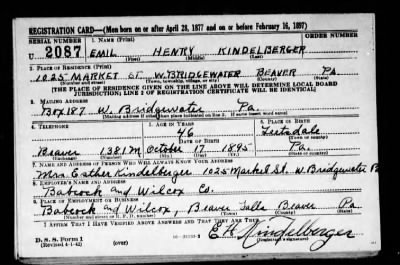 REGISTRATION CARD—(Men born on or after April 28, 1877 and on or before February 16, 1897)
SERIAL NUMBER 1. NAME (Print) ORDER NUMBER
U 2087 EMIL HENRY KINDELBERGER
(First) (Middle) (Last)
2. PLACE OF RESIDENCE (Print)
1025 MARKET ST W. BRIDGEWATER BEAVER PA.
(Number and street) (Town, township, village, or city) (County) (State)
[THE PLACE OF RESIDENCE GIVEN ON THE LINE ABOVE WILL DETERMINE LOCAL BOARD
JURISDICTION; LINE 2 OF REGISTRATION CERTIFICATE WILL BE IDENTICAL]
3. MAILING ADDRESS
Box 187 W. Bridgewater Pa.
[Mailing address if other than place indicated on line 2. If same insert word same]
4. TELEPHONE 5. AGE IN YEARS 6. PLACE OF BIRTH
46 Leetsdale
DATE OF BIRTH (Town or county)
Beaver 1381M October 17 1895 Pa.
(Exchange) (Number) (Mo.) (Day) (Yr.) (State or country)
7. NAME AND ADDRESS OF PERSON WHO WILL ALWAYS KNOW YOUR ADDRESS
Mrs. Esther Kindelberger 1025 Market St. W. Bridgewater
8. EMPLOYER'S NAME AND ADDRESS
Babcock and Wilcox Co.
9. PLACE OF EMPLOYMENT OR BUSINESS
Babcock and Wilcox, Beaver Falls Beaver Pa
(Number and street or R. F. D. number) (Town) (County) (State)
I AFFIRM THAT I HAVE VERIFIED ABOVE ANSWERS AND THAT THEY ARE TRUE.
D. S. S. Form 1
(Revised 4-1-42) (over)
E H Kindelberger
(Registrant's signature)